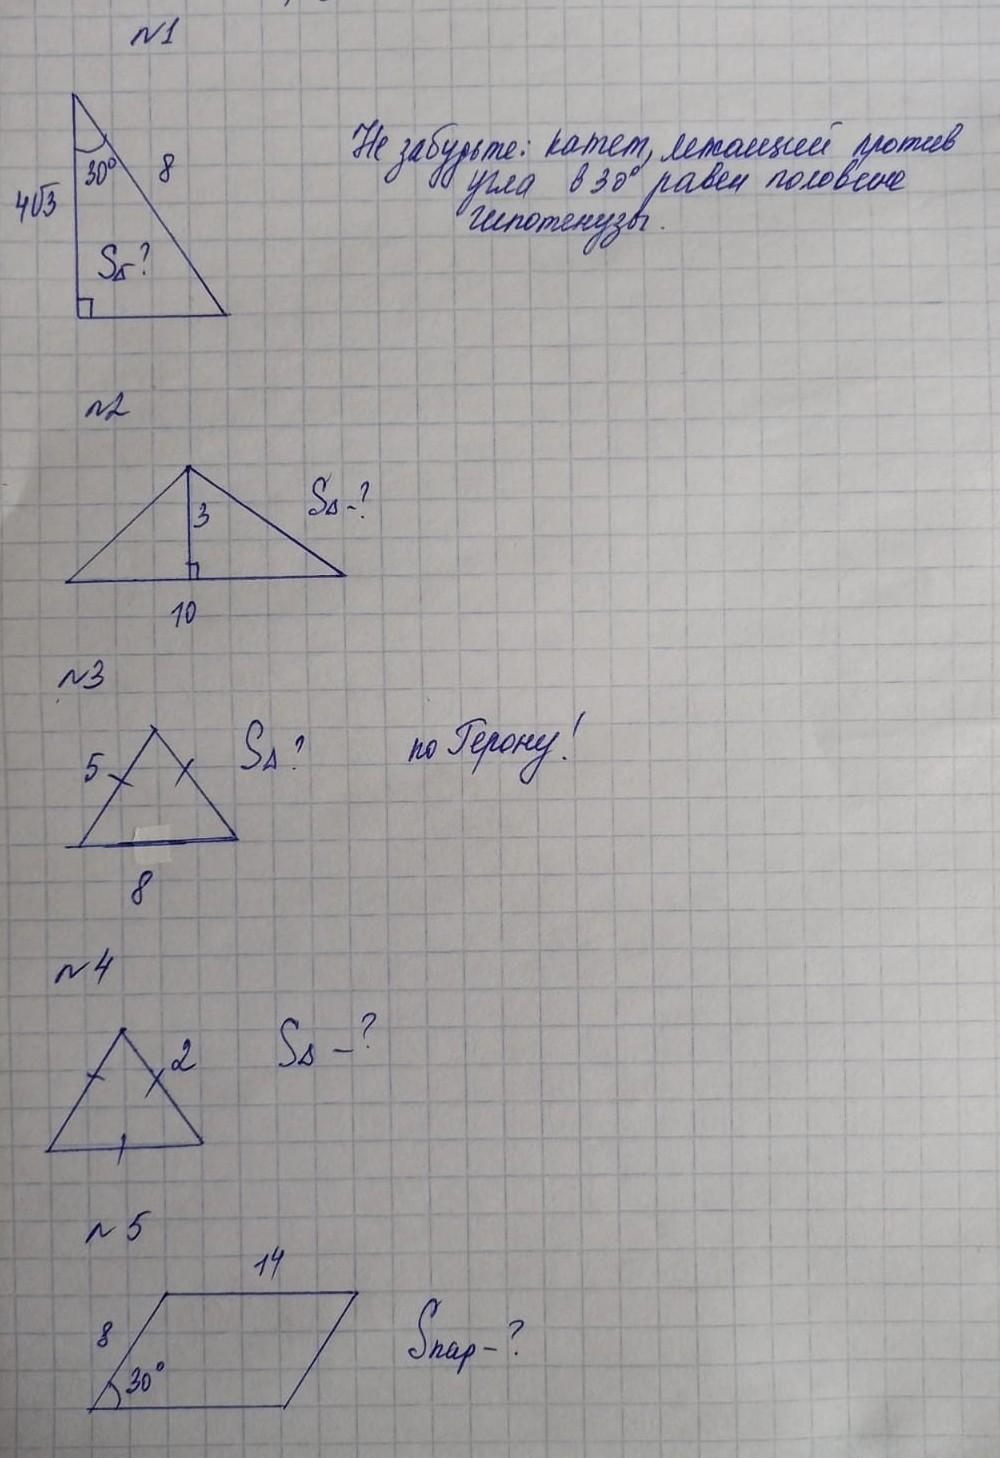 №1
30°
8
4√3
S△-?
Не забудьте: катет, лежащий против
угла в 30° равен половине
гипотенузы.
№2
3
S△-?
10
№3
5
S△?
по Герону!
8
№4
2
S△-?
№5
14
8
30°
Sпар-?